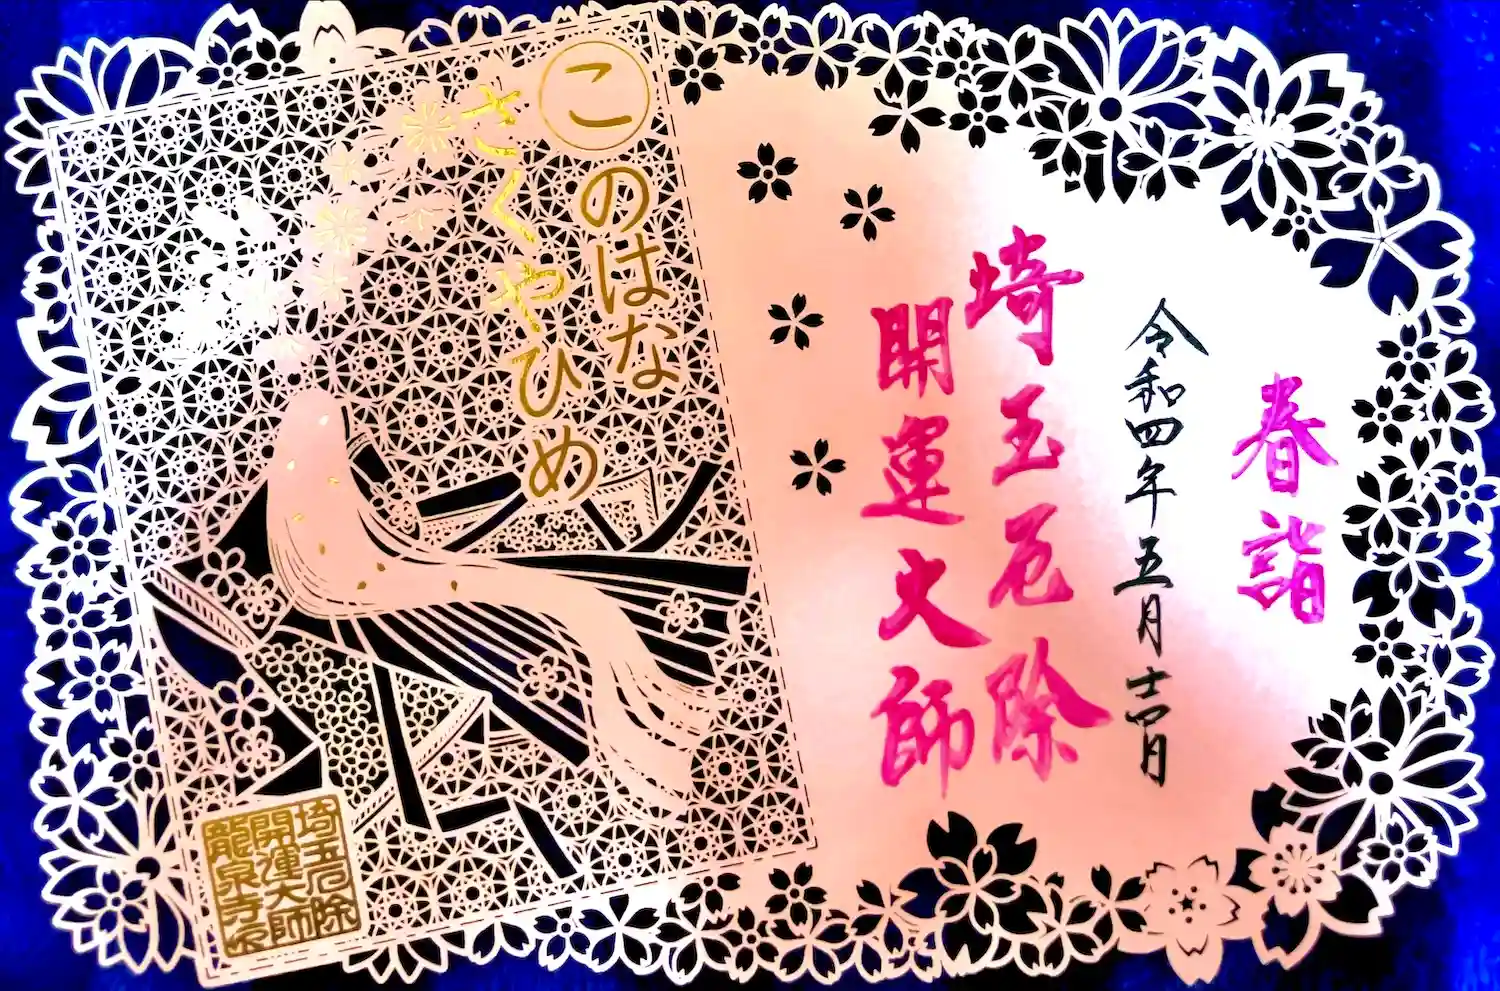 春詣
令和四年五月十四日
埼玉厄除
開運大師
このはな
さくやひめ
埼玉厄除
開運大師
龍泉寺印